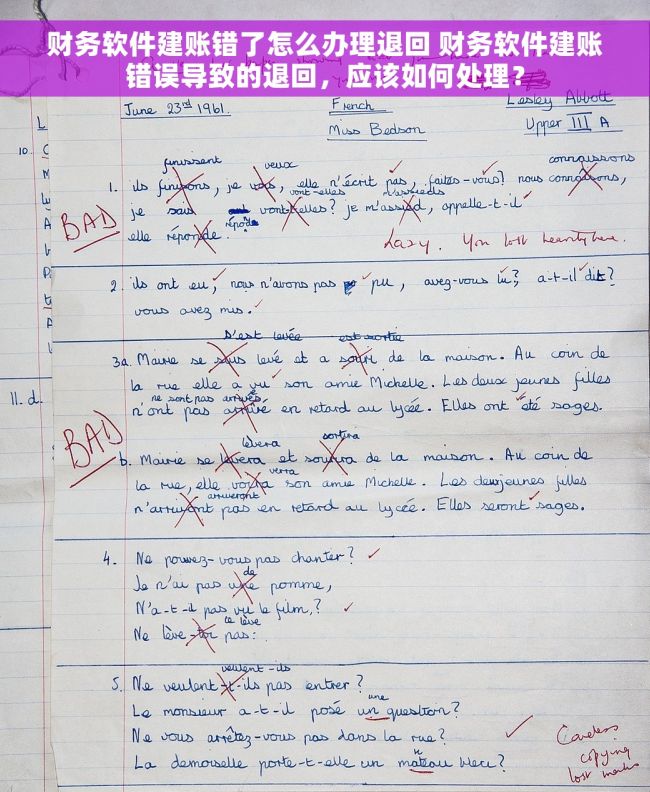 财务软件建账错了怎么办理退回 财务软件建账
错误导致的退回，应该如何处理？
June 23rd 1961. French Lesley Abbott
Miss Bedson Upper III A
10.
finissent veux connaissons
1. ils finisons, je vois, elle n'écrit pas, faites-vous? nous connaisons,
vont-elles m'assieds
je sais vont-t-elles? je m'assied, appelle-t-il
BAD
elle réponde.
Lazy. You lost
2. ils ont eu, nous n'avons pas pu, avez-vous lu? a-t-il dit?
vous avez mis.
s'est levée est sortie
3a. Mairie se levé et a de la maison. Au coin de
la rue elle a vu son amie Michelle. Les deux jeunes filles
ne sont pas arrivés
n'ont pas arrivé en retard au lycée. Elles ont été sages.
11. d.
BAD
lèvera sortira
b. Mairie se levera et de la maison. Au coin de
verra
la rue, elle son amie Michelle. Les deux jeunes filles
arriveront
pas en retard au lycée. Elles seront sages.
4. Ne pouvez-vous pas chanter?
de
Je n'ai pas une pomme,
N'a-t-il pas vu le film,?
te lève
Ne lève-toi pas:
veulent-ils
5. Ne veulent-t-ils pas entrer?
une
Le monsieur a-t-il posé un question?
Ne vous arrêtez-vous pas dans la rue?
La demoiselle porte-t-elle un mateau bleu?
Careless
copying
lost marks